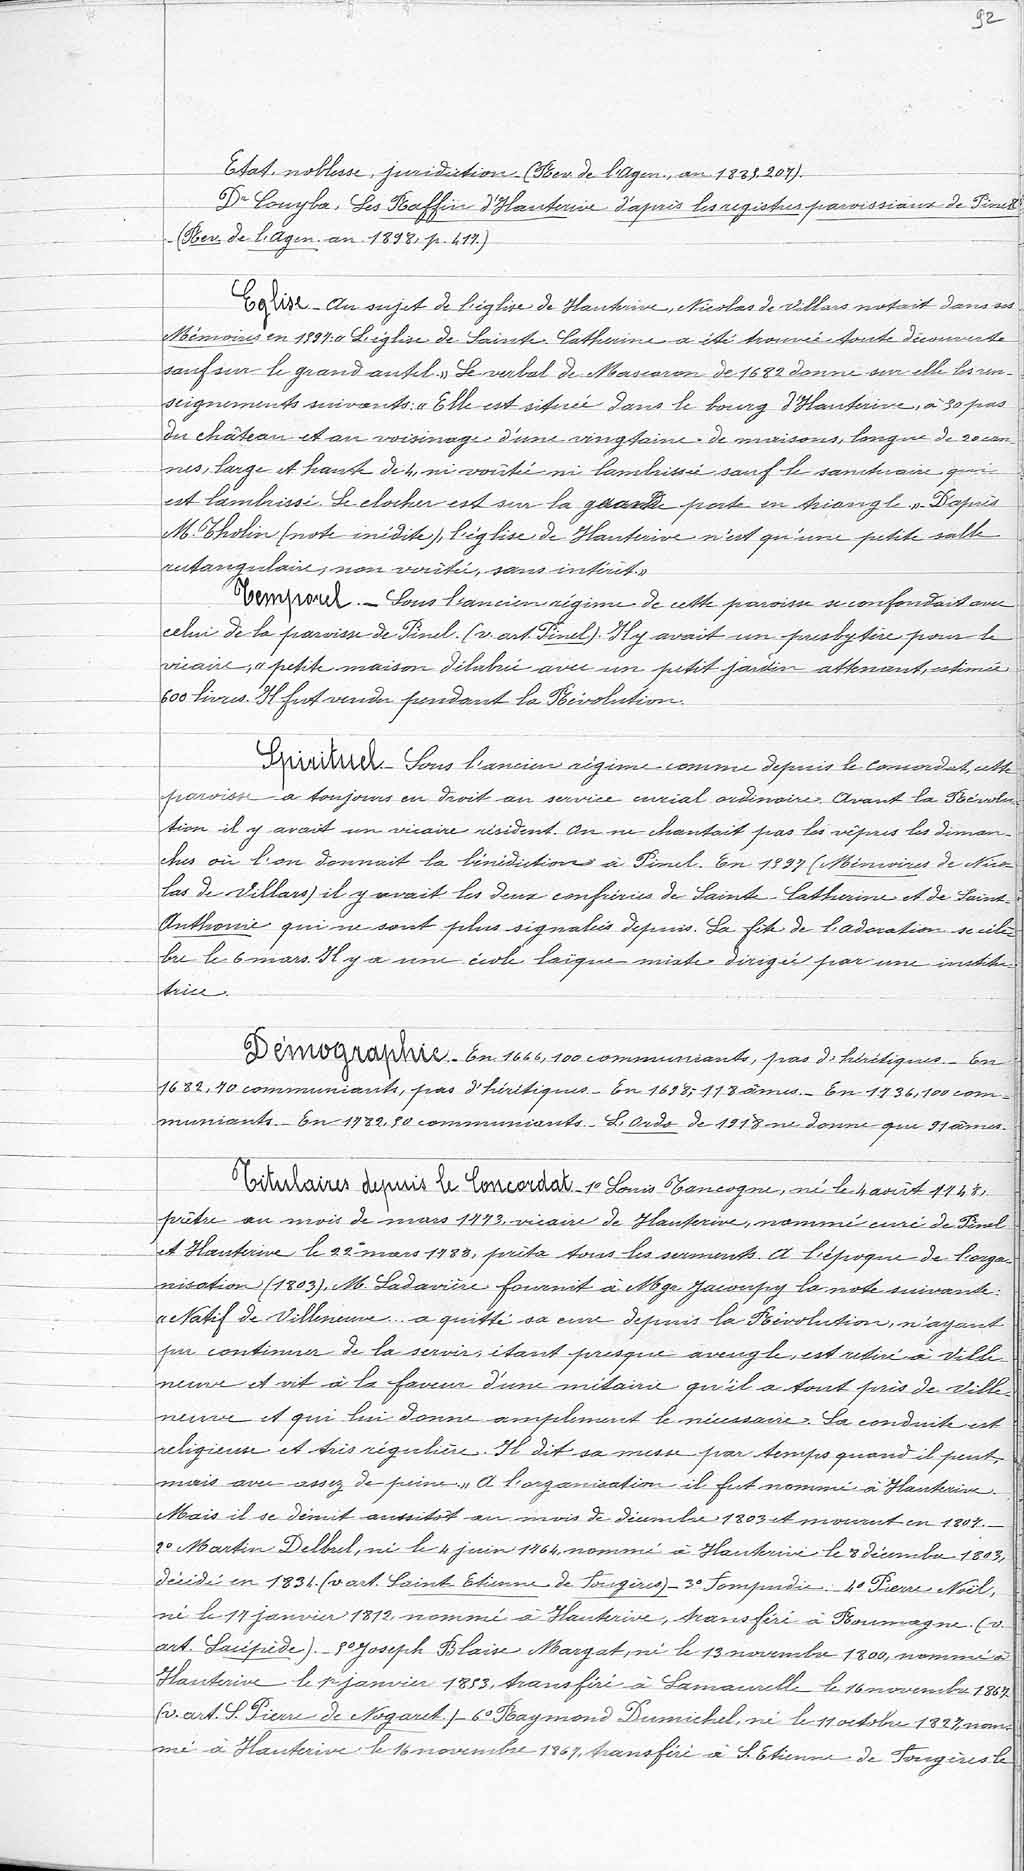 92
Etat, noblesse, juridiction (Rev. de l'Agen., an 1885, 207).
Dr Couyba, Les Raffin d'Hauterive d'après les registres paroissiaux de Pinel
(Rev. de l'Agen. an 1898, p. 417.)
Eglise - Au sujet de l'église de Hauterive, Nicolas de Villars notait dans ses
Mémoires en 1597: "L'église de Sainte Catherine a été trouvée toute découverte
sauf sur le grand autel." Le verbal de Mascaron de 1682 donne sur elle les ren-
seignements suivants: "Elle est située dans le bourg d'Hauterive, à 50 pas
du château et au voisinage d'une vingtaine de maisons, longue de 20 can-
nes, large et haute de 4, ni voûtée ni lambrissée sauf le sanctuaire qui
est lambrissé. Le clocher est sur la grande porte en triangle." D'après
M. Tholin (note inédite), l'église de Hauterive n'est qu'une petite salle
rectangulaire, non voûtée, sans intérêt."
Temporel. - Sous l'ancien régime de cette paroisse se confondait avec
celui de la paroisse de Pinel. (v. art. Pinel). Il y avait un presbytère pour le
vicaire, "petite maison délabrée avec un petit jardin attenant, estimée
600 livres. Il fut vendu pendant la Révolution.
Spirituel - Sous l'ancien régime comme depuis le Concordat, cette
paroisse a toujours eu droit au service curial ordinaire. Avant la Révolu-
tion il y avait un vicaire résident. On ne chantait pas les vêpres les diman-
ches où l'on donnait la bénédiction à Pinel. En 1597 (Mémoires de Nico-
las de Villars) il y avait les deux confréries de Sainte-Catherine et de Saint-
Anthoine qui ne sont plus signalées depuis. La fête de l'adoration se célè-
bre le 6 mars. Il y a une école laïque mixte dirigée par une institu-
trice.
Démographie - En 1666, 100 communiants, pas d'hérétiques. - En
1682, 70 communiants, pas d'hérétiques - En 1698, 118 âmes. - En 1736, 100 com-
muniants. - En 1782, 80 communiants. - L'Ordo de 1918 ne donne que 91 âmes.
Titulaires depuis le Concordat - 1° Louis Tancogne, né le 4 août 1748,
prêtre au mois de mars 1773, vicaire de Hauterive, nommé curé de Pinel
et Hauterive le 22 mars 1788, prêta tous les serments. A l'époque de l'orga-
nisation (1803), M. Ladavière fournit à Mgr Jacoupy la note suivante:
"Natif de Villeneuve... a quitté sa cure depuis la Révolution, n'ayant
pu continuer de la servir, étant presque aveugle, est retiré à Ville-
neuve et vit à la faveur d'une métairie qu'il a tout près de Ville-
neuve et qui lui donne amplement le nécessaire. Sa conduite est
religieuse et très régulière. Il dit sa messe par temps quand il peut,
mais avec assez de peine." A l'organisation il fut nommé à Hauterive.
Mais il se démit aussitôt au mois de décembre 1803 et mourut en 1807. -
2° Martin Delbrel, né le 4 juin 1764, nommé à Hauterive le 8 décembre 1803,
décédé en 1834. (v. art. Saint Etienne de Fougères) - 3° Fompudie. - 4° Pierre Noël,
né le 17 janvier 1812, nommé à Hauterive, transféré à Roumagne. (v.
art. Lacépède). - 5° Joseph Blaise Margat, né le 13 novembre 1800, nommé à
Hauterive le 1r janvier 1853, transféré à Lamaurelle le 16 novembre 1867
(v. art. S. Pierre de Nogaret.) - 6° Raymond Dumichel, né le 11 octobre 1827, nom-
mé à Hauterive le 16 novembre 1867, transféré à S. Etienne de Fougères le